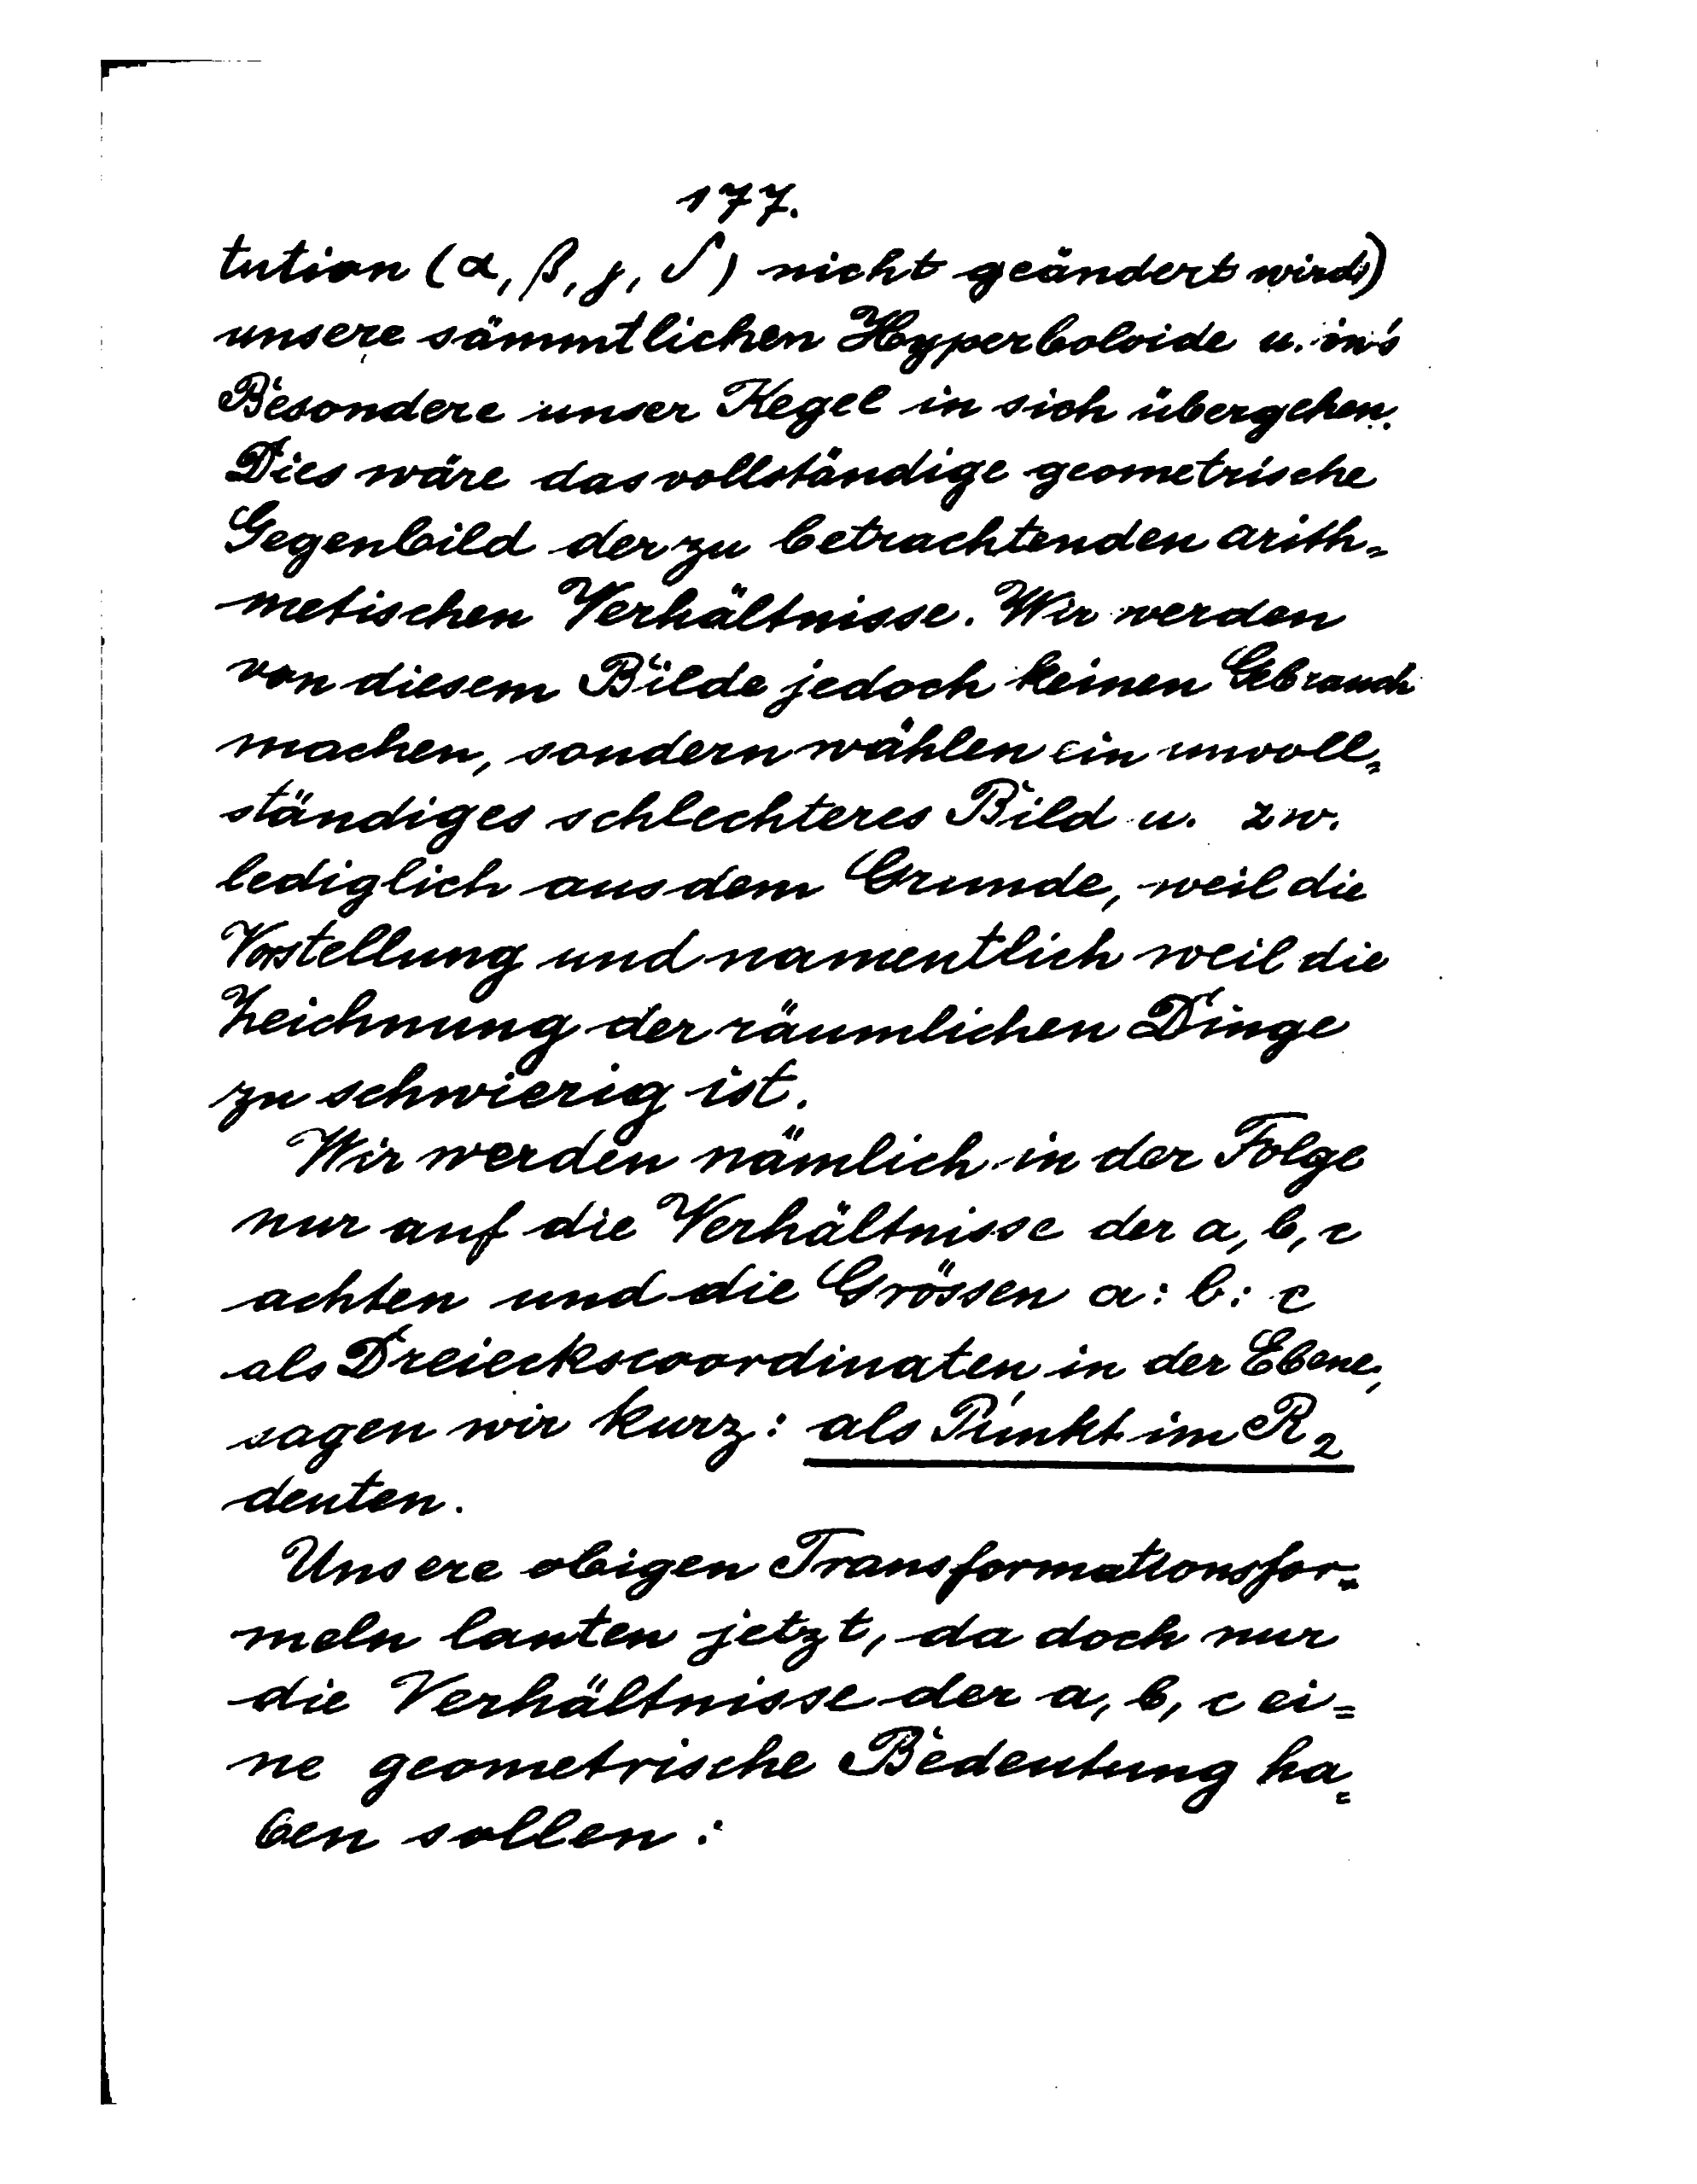 177.
tution (α, β, γ, δ) nicht geändert wird)
unsere sämmtlichen Hyperboloide u. in's
Besondere unser Kegel in sich übergehen.
Dies wäre das vollständige geometrische
Gegenbild der zu betrachtenden arith=
metischen Verhältnisse. Wir werden
von diesem Bilde jedoch keinen Gebrauch
machen, sondern wählen ein unvoll=
ständiges schlechteres Bild u. zw.
lediglich aus dem Grunde, weil die
Vorstellung und namentlich weil die
Zeichnung der räumlichen Dinge
zu schwierig ist.
Wir werden nämlich in der Folge
nur auf die Verhältnisse der a, b, c
achten und die Grössen a : b : c
als Dreieckscoordinaten in der Ebene,
sagen wir kurz: als Punkt im R₂
deuten.
Unsere obigen Transformationsfor=
meln lauten jetzt, da doch nur
die Verhältnisse der a, b, c ei=
ne geometrische Bedeutung ha=
ben sollen :